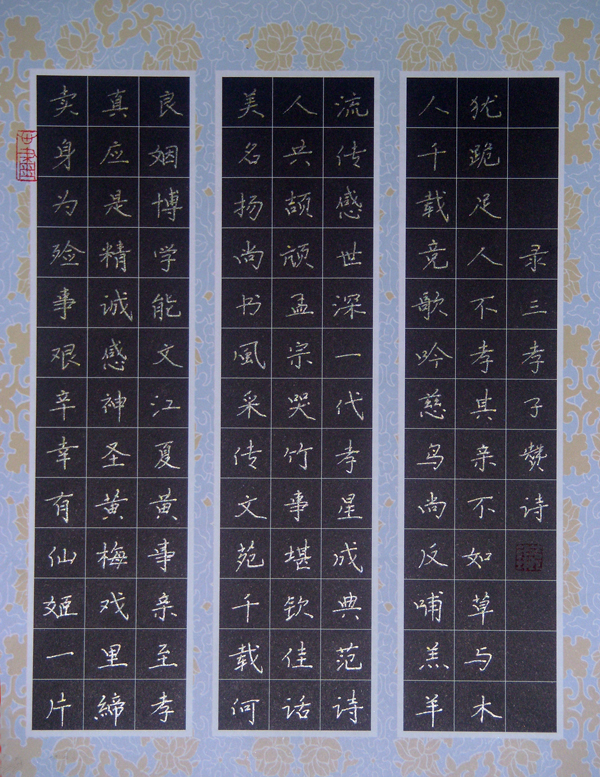 卖身为殓事艰辛幸有仙姬一片
真应是精诚感神圣黄梅戏里締
良姻博学能文江夏黄事亲至孝
美名扬尚书風采传文苑千载何
人共颉颃孟宗哭竹事堪钦佳话
流传感世深一代孝星成典范诗
人千载竞歌吟慈乌尚反哺羔羊
犹跪足人不孝其亲不如草与木
录三孝子赞诗